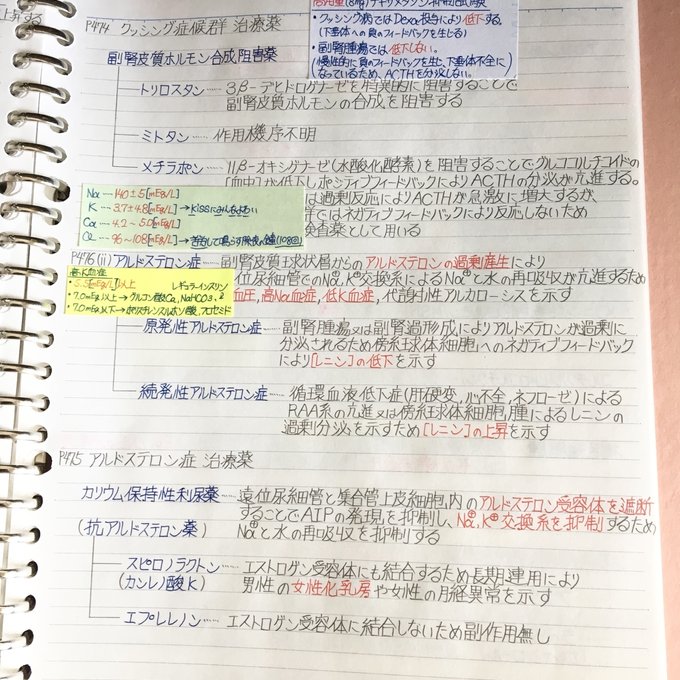 上昇する
クッシング病ではDexa投与により低下する。
(下垂体への負のフィードバックを生じる)
副腎腫瘍では低下しない。
(慢性的に負のフィードバックを生じ、下垂体不全に
なっているため、ACTHを分泌しない。)
P474 クッシング症候群 治療薬
副腎皮質ホルモン合成阻害薬
トリロスタン 3β-デヒドロゲナーゼを特異的に阻害することで
副腎皮質ホルモンの合成を阻害する
ミトタン 作用機序不明
メチラポン 11β-オキシゲナーゼ(水酸化酵素)を阻害することでグルココルチコイドの
[血中]が低下しポジティブフィードバックによりACTHの分泌が亢進する。
は過剰反応によりACTHが急激に増大するが、
ではネガティブフィードバックにより反応しないため
薬として用いる
Na 140±5[mEq/L]
K 3.7~4.8[mEq/L]→kissにみんなよろい
Ca 4.2~5.0[mEq/L]
Cl 96~108[mEq/L]
P476(ii)アルドステロン症 副腎皮質球状層からのアルドステロンの過剰産生により
位尿細管でのNa⊕,K⊕交換系によるNa⊕と水の再吸収が亢進するため
血圧,高Na血症,低K血症,代謝性アルカローシスを示す
高K血症
5.5[mEq/L]以上 レギュラーインスリン
7.0mEq以上→グルコン酸Ca, NaHCO3,
7.0mEq以下→ポリスチレンスルホン酸,フロセミド
原発性アルドステロン症 副腎腫瘍又は副腎過形成によりアルドステロンが過剰に
分泌されるため傍糸球体細胞へのネガティブフィードバック
により[レニン]の低下を示す
続発性アルドステロン症 循環血液低下症(肝硬変,心不全,ネフローゼ)による
RAA系の亢進又は傍糸球体細胞腫によるレニンの
過剰分泌を示すため[レニン]の上昇を示す
P475 アルドステロン症 治療薬
カリウム保持性利尿薬 遠位尿細管と集合管上皮細胞内のアルドステロン受容体を遮断
することでAIPの発現を抑制し、Na⊕,K⊕交換系を抑制するため
(抗アルドステロン薬) Na⊕と水の再吸収を抑制する
スピロノラクトン エストロゲン受容体にも結合するため長期連用により
(カンレノ酸K) 男性の女性化乳房や女性の月経異常を示す
エプレレノン エストロゲン受容体に結合しないため副作用無し